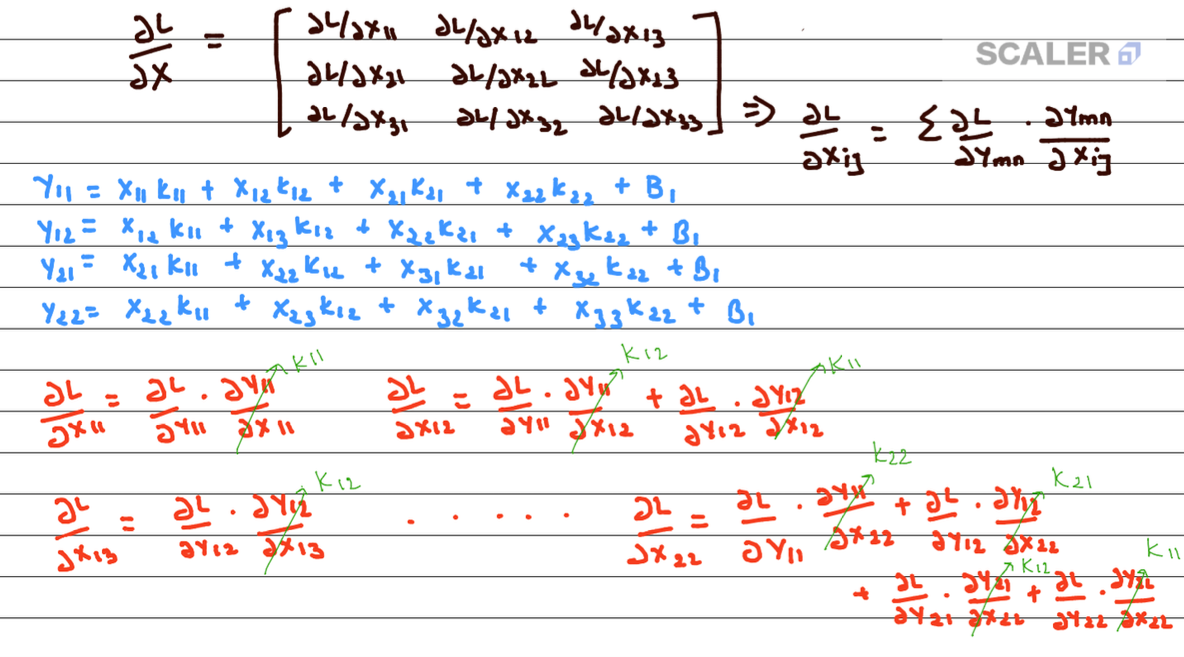 ∂L/∂X = [ ∂L/∂X11 ∂L/∂X12 ∂L/∂X13
SCALER
∂L/∂X21 ∂L/∂X22 ∂L/∂X23
∂L/∂X31 ∂L/∂X32 ∂L/∂X33 ] => ∂L/∂Xij = Σ ∂L/∂Ymn · ∂Ymn/∂Xij
Y11 = X11 K11 + X12 K12 + X21 K21 + X22 K22 + B1
Y12 = X12 K11 + X13 K12 + X22 K21 + X23 K22 + B1
Y21 = X21 K11 + X22 K12 + X31 K21 + X32 K22 + B1
Y22 = X22 K11 + X23 K12 + X32 K21 + X33 K22 + B1
K11 K12 K11
∂L/∂X11 = ∂L/∂Y11 · ∂Y11/∂X11 ∂L/∂X12 = ∂L/∂Y11 · ∂Y11/∂X12 + ∂L/∂Y12 · ∂Y12/∂X12
K12 K22 K21
∂L/∂X13 = ∂L/∂Y12 · ∂Y12/∂X13 . . . . . ∂L/∂X22 = ∂L/∂Y11 · ∂Y11/∂X22 + ∂L/∂Y12 · ∂Y12/∂X22
K12 K11
+ ∂L/∂Y21 · ∂Y21/∂X22 + ∂L/∂Y22 · ∂Y22/∂X22